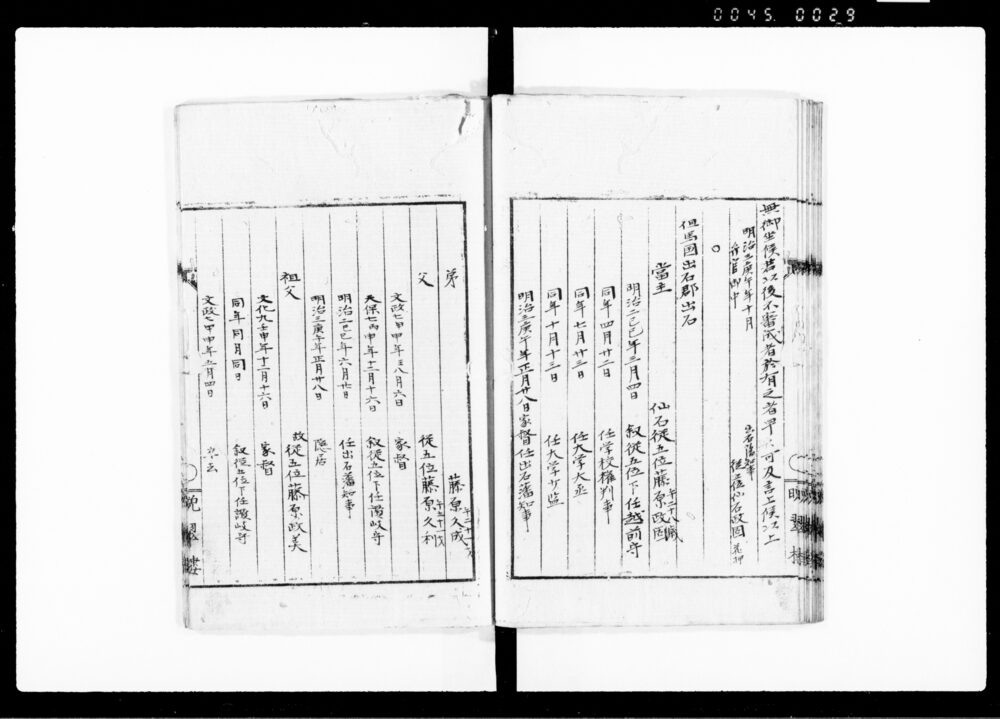 0045 0029
無御坐候若以後不審成者於有之者早々可及言上候以上
明治三庚午年十月
出石藩知事
従五位仙石政固 花押
弁官御中
○
但馬國出石郡出石
當主
仙石従五位藤原政固
年二十八歳
明治二己巳年三月四日
叙従五位下任越前守
同年四月廿二日
任学校権判事
同年七月廿三日
任大学大丞
同年十月十三日
任大学少監
明治三庚午年正月廿八日家督任出石藩知事
弟
藤原久成
父
従五位藤原久利
文政七甲申年八月六日
家督
天保七丙申年十二月十六日
叙従五位下任讃岐守
明治二己巳年六月廿日
任出石藩知事
明治三庚午年正月廿八日
隠居
祖父
故従五位藤原政美
文化九壬申年十二月十六日
家督
同年同月同日
叙従五位下任讃岐守
文政七甲申年五月四日
翠
樓